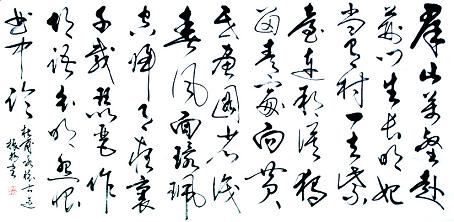 群山万壑赴
荆门生长明妃
尚有村一去紫
台连朔漠独
留青冢向黄
昏画图省识
春风面环珮
空归月夜魂
千载琵琶作
胡语分明怨恨
曲中论
杜甫咏怀古迹